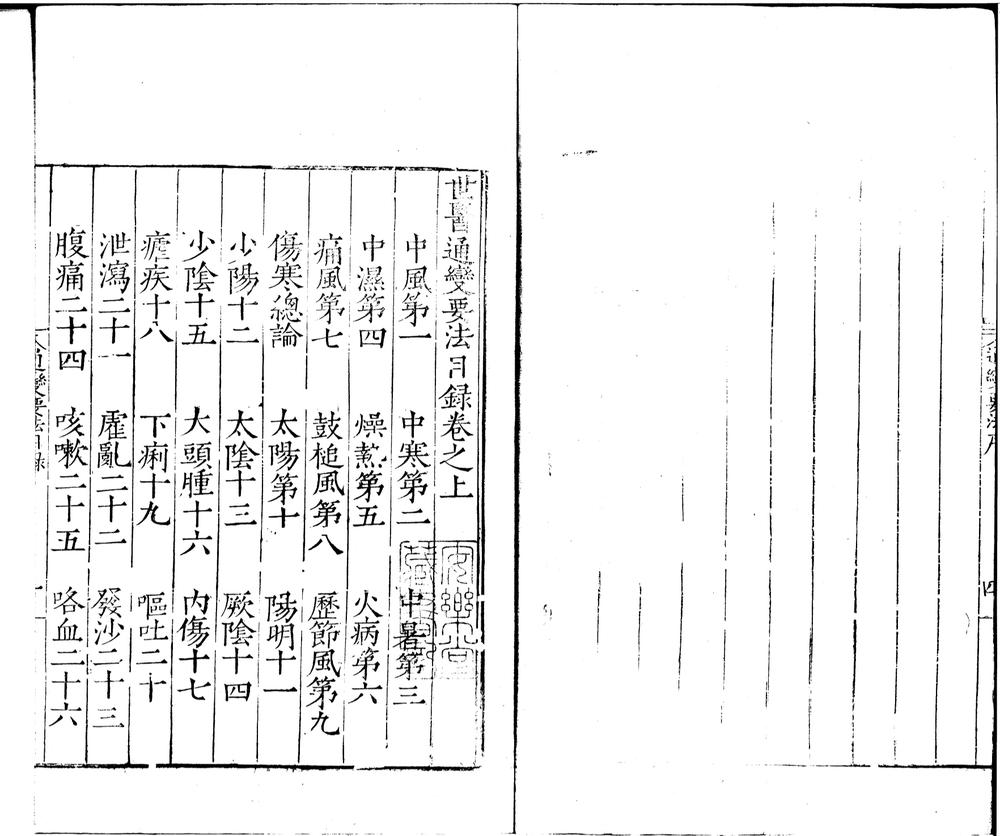 通變要法序
四
世醫通變要法目録卷之上
中風第一 中寒第二 中暑第三
中濕第四 燥𤍠第五 火病第六
痛風第七 鼓槌風第八 歷節風第九
傷寒總論 太陽第十 陽明十一
少陽十二 太陰十三 厥陰十四
少陰十五 大頭腫十六 内傷十七
瘧疾十八 下痢十九 嘔吐二十
泄瀉二十一 霍亂二十二 發沙二十三
腹痛二十四 咳嗽二十五 咯血二十六
通變要法目録
一